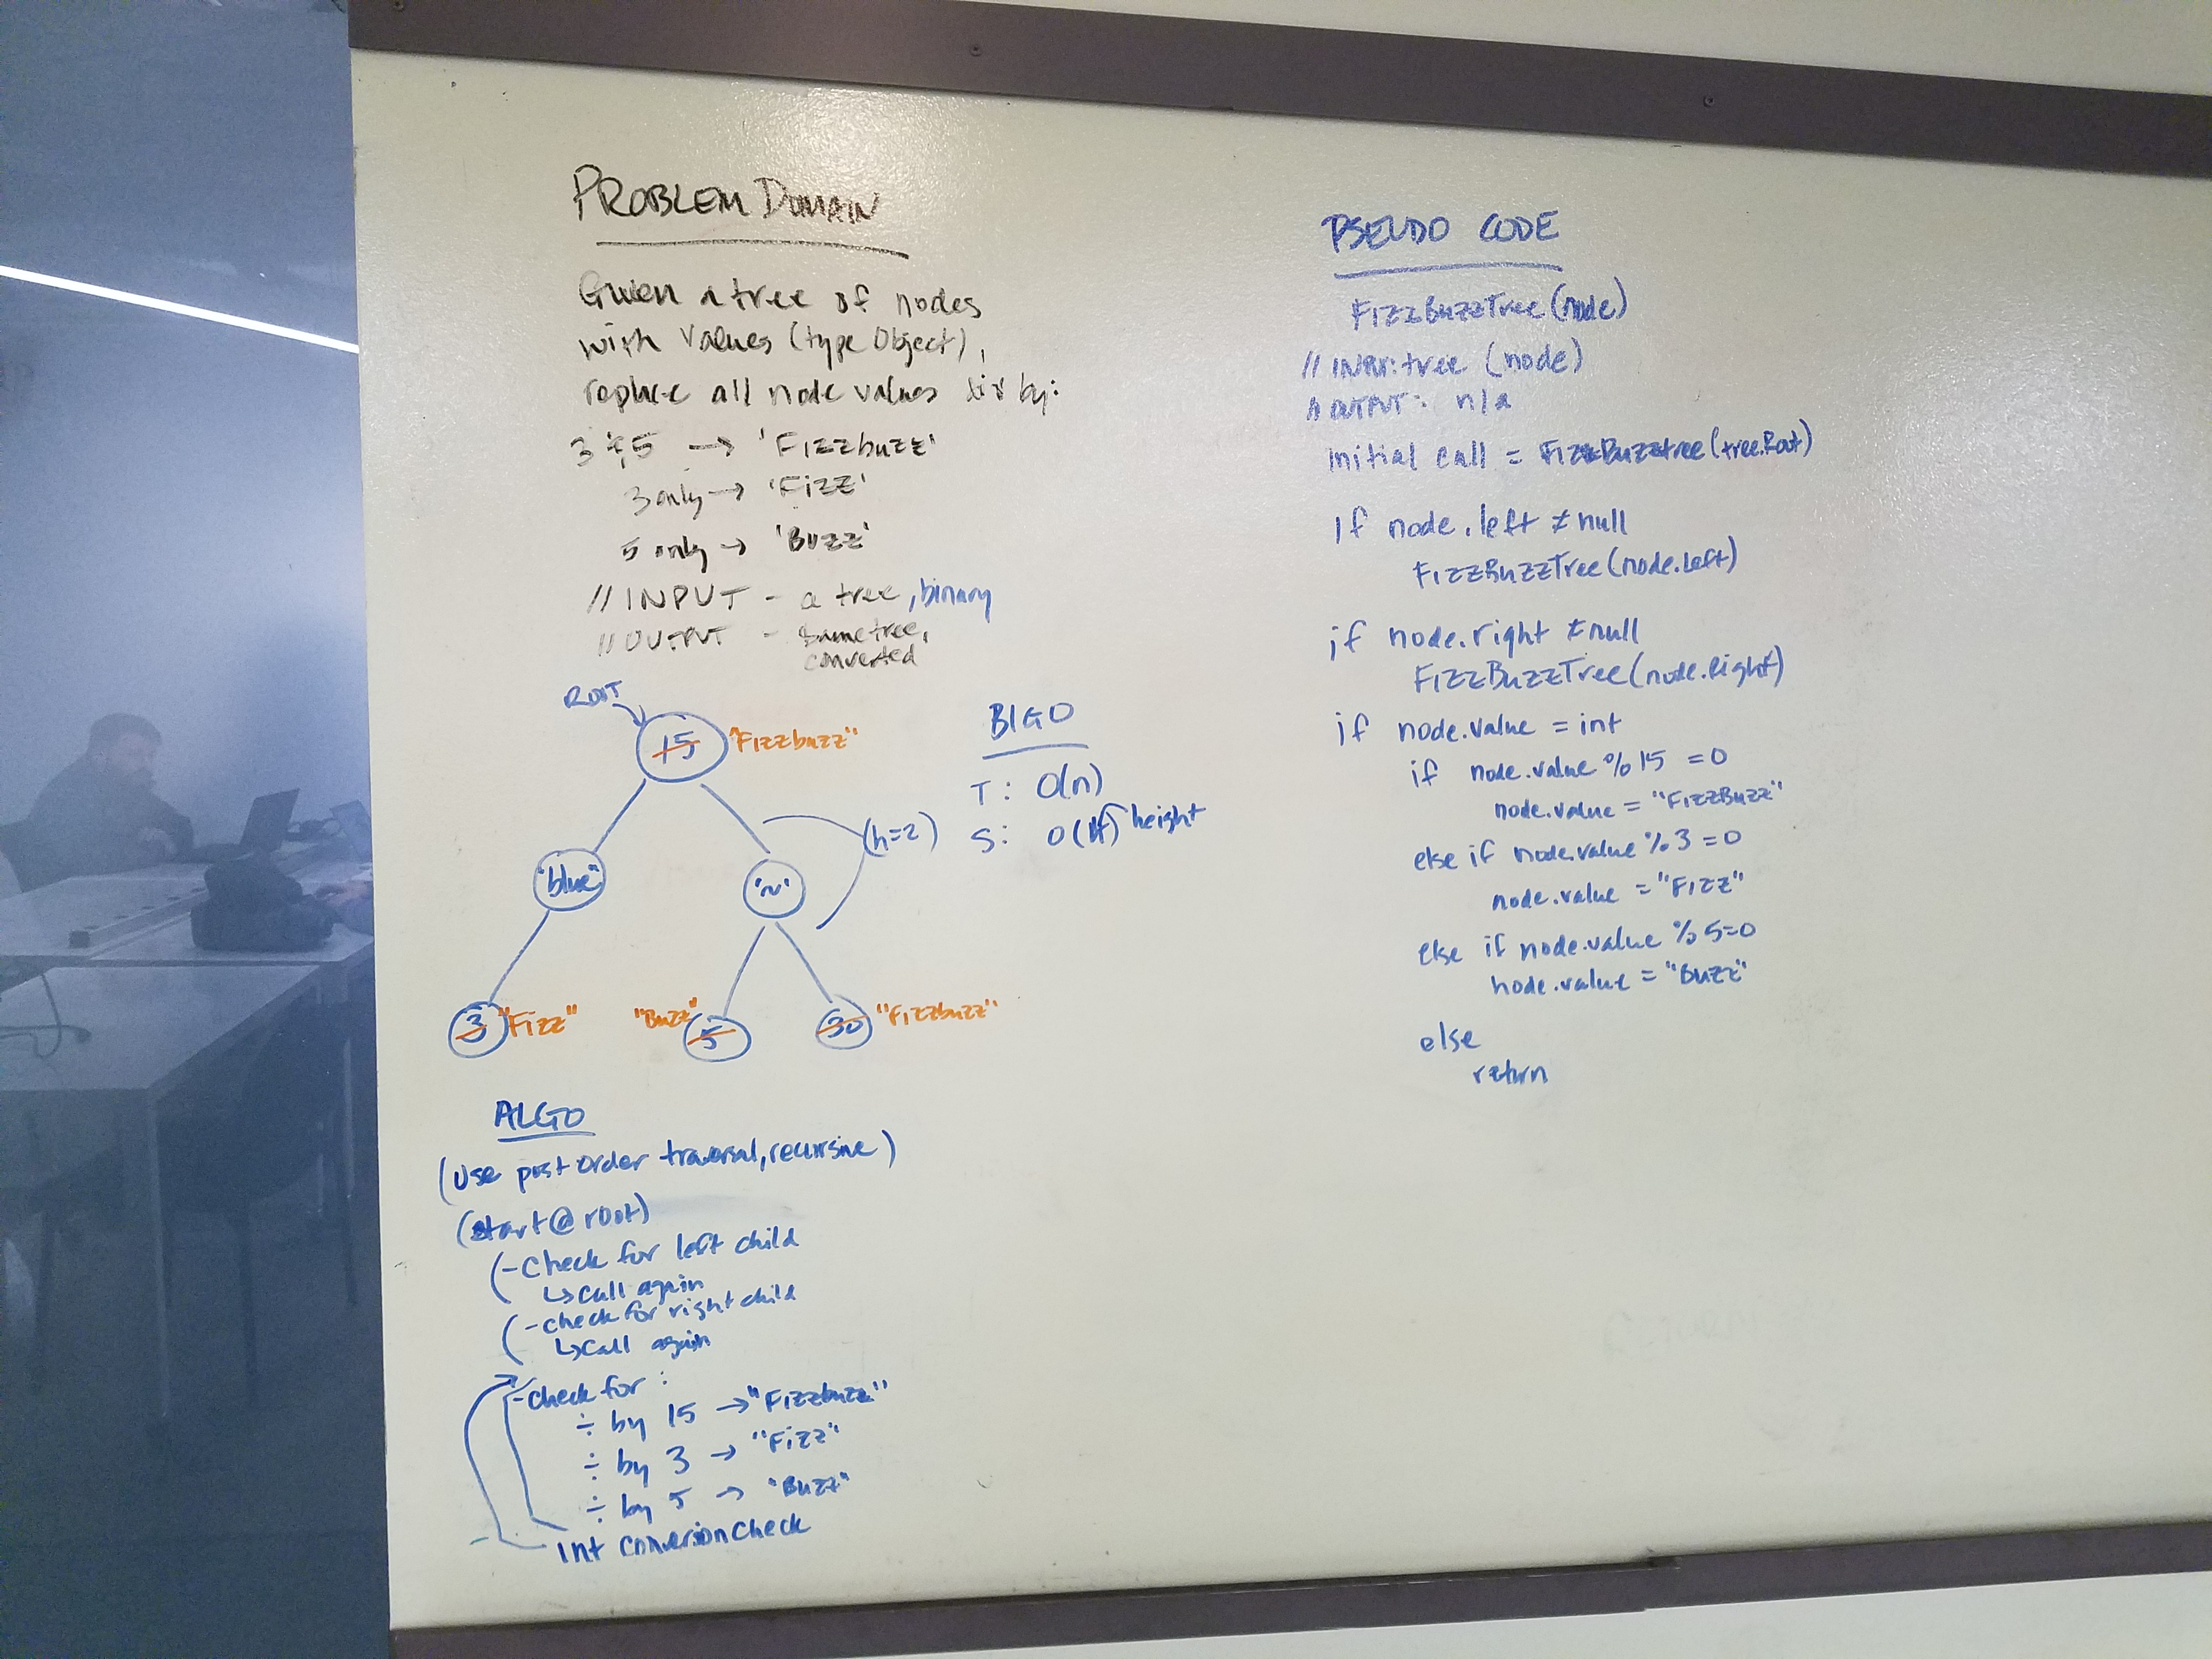 PROBLEM DOMAIN
Given a tree of nodes
with values (type Object),
replace all node values div by:
3 & 5 → 'Fizzbuzz'
3 only → 'Fizz'
5 only → 'Buzz'
// INPUT - a tree, binary
// OUTPUT - same tree,
converted
ROOT
15 "Fizzbuzz"
"blue"
'~'
(h=2)
3 "Fizz"
"Buzz" 5
30 "Fizzbuzz"
BIG O
T: O(n)
S: O(H) height
ALGO
(use post order traversal, recursive)
(start @ root)
(- Check for left child
↳ call again
(- check for right child
↳ call again
- check for:
÷ by 15 → "Fizzbuzz"
÷ by 3 → "Fizz"
÷ by 5 → "Buzz"
Int conversion check
PSEUDO CODE
FizzBuzzTree(node)
// INPUT: tree (node)
// OUTPUT: n/a
initial call = FizzBuzztree(tree.Root)
if node.left ≠ null
FizzBuzzTree(node.left)
if node.right ≠ null
FizzBuzzTree(node.Right)
if node.value = int
if node.value % 15 = 0
node.value = "FizzBuzz"
else if node.value % 3 = 0
node.value = "Fizz"
else if node.value % 5 = 0
node.value = "Buzz"
else
return